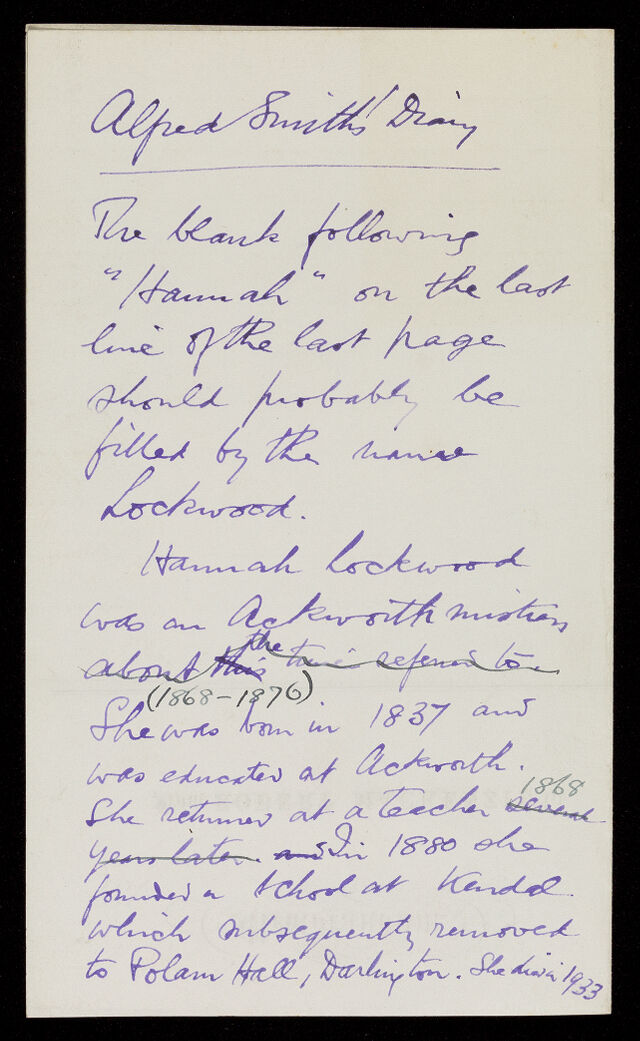 Alfred Smith's Diary
The blank following
"Hannah" on the last
line of the last page
should probably be
filled by the name
Lockwood.
Hannah Lockwood
was an Ackworth mistress
about this the time referred to
(1868-1876)
She was born in 1837 and
was educated at Ackworth.
She returned as a teacher several 1868
years later. and In 1880 she
founded a School at Kendal
which subsequently removed
to Polam Hall, Darlington. She died in 1933